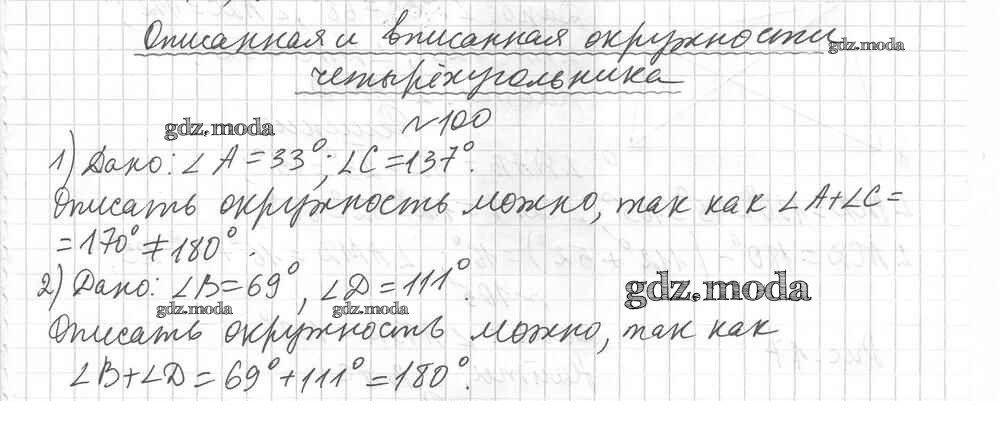 Описанная и вписанная окружности
gdz.moda
четырёхугольника
gdz.moda
№100
1) Дано: ∠A = 33°; ∠C = 137°.
Описать окружность можно, так как ∠A+∠C =
= 170° ≠ 180°.
2) Дано: ∠B = 69°, ∠D = 111°.
gdz.moda
gdz.moda
gdz.moda
Описать окружность можно, так как
∠B+∠D = 69°+111° = 180°.